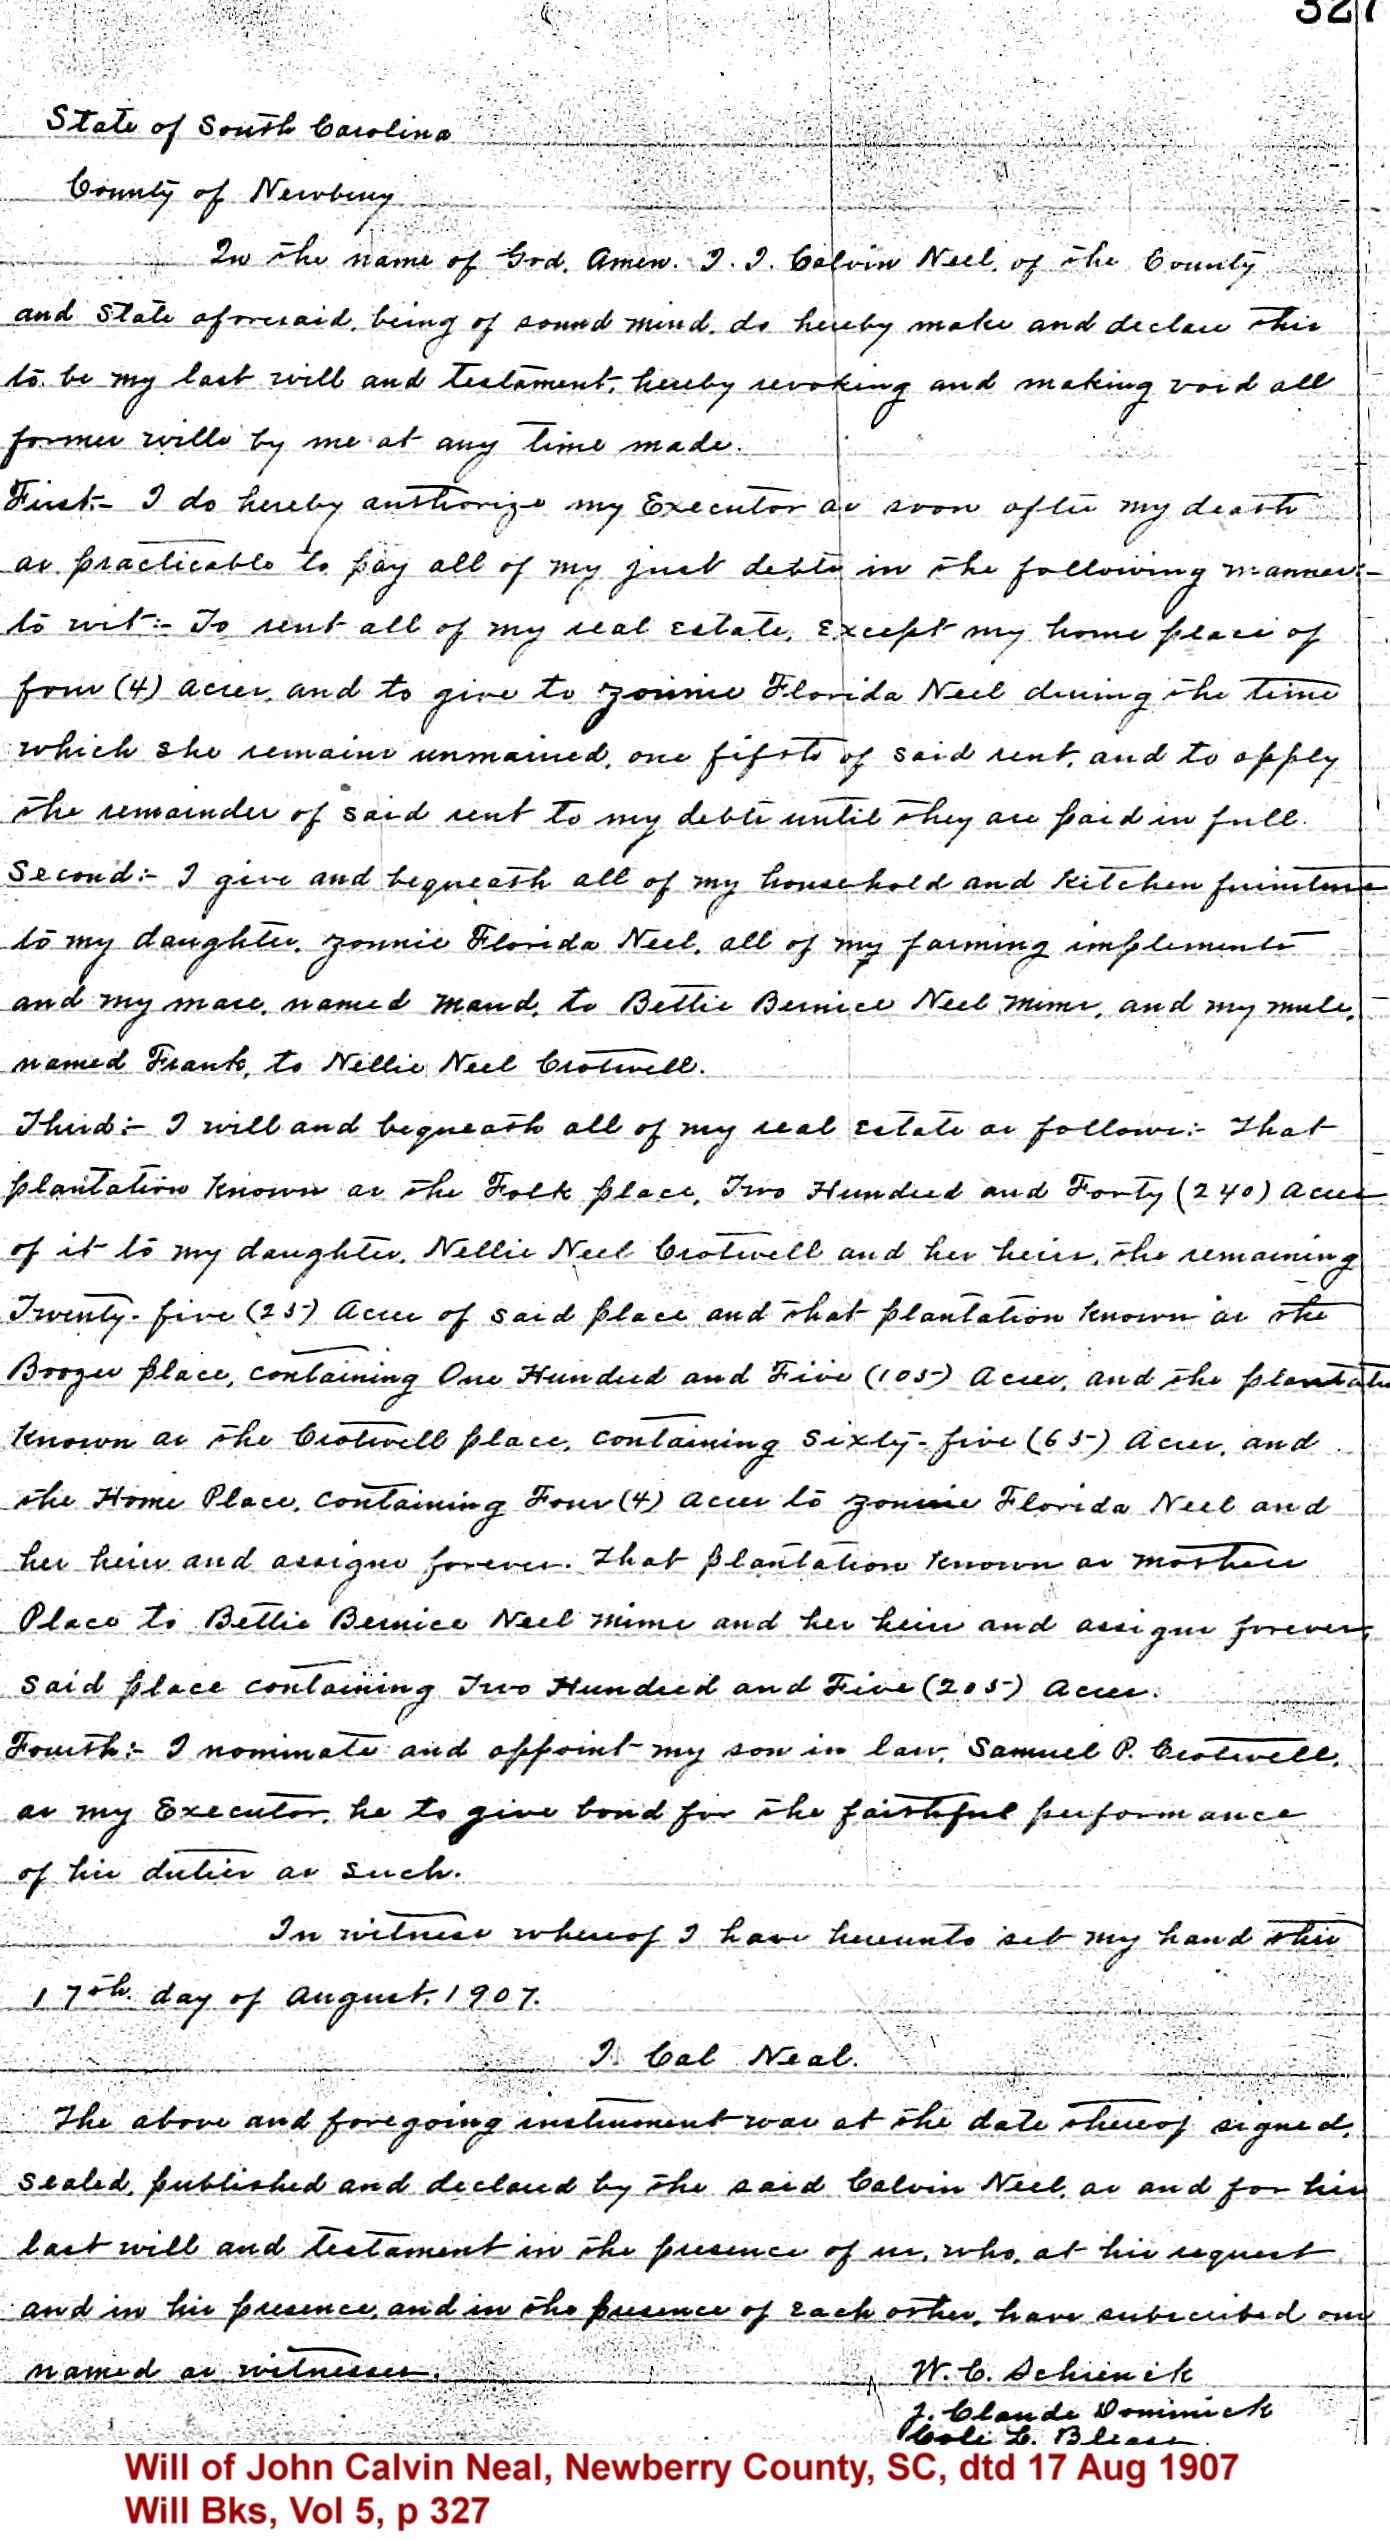 327
State of South Carolina
County of Newberry
In the name of God, Amen. I. J. Calvin Neel, of the County
and State aforesaid, being of sound mind, do hereby make and declare this
to be my last will and testament, hereby revoking and making void all
former wills by me at any time made.
First:- I do hereby authorize my Executor as soon after my death
as practicable to pay all of my just debts in the following manner:-
to wit:- To rent all of my real estate, except my home place of
four (4) acres, and to give to Zonnie Florida Neel during the time
which she remains unmarried, one fifth of said rent, and to apply
the remainder of said rent to my debts until they are paid in full.
Second:- I give and bequeath all of my household and kitchen furniture
to my daughter, Zonnie Florida Neel, all of my farming implements
and my mare, named Maud, to Bettie Bernice Neel Mims, and my mule,
named Frank, to Nellie Neel Crotwell.
Third:- I will and bequeath all of my real estate as follows:- That
plantation known as the Folk place, Two Hundred and Forty (240) Acres
of it to my daughter, Nellie Neel Crotwell and her heirs, the remaining
Twenty-five (25) Acres of said place and that plantation known as the
Boozer place, containing One Hundred and Five (105) Acres, and the plantatio
known as the Crotwell place, containing Sixty-five (65) Acres, and
the Home Place, containing Four (4) acres to Zonnie Florida Neel and
her heirs and assigns forever. That plantation known as Mothers
Place to Bettie Bernice Neel Mims and her heirs and assigns forever,
said place containing Two Hundred and Five (205) Acres.
Fourth:- I nominate and appoint my son in law, Samuel P. Crotwell,
as my Executor, he to give bond for the faithful performance
of his duties as such.
In witness whereof I have hereunto set my hand this
17th. day of August, 1907.
J. Cal Neal.
The above and foregoing instrument was at the date thereof signed,
sealed, published and declared by the said Calvin Neel, as and for his
last will and testament in the presence of us, who, at his request
and in his presence, and in the presence of each other, have subscribed our
named as witnesses.
W. C. Schienick
J. Claude Dominick
Cole L. Blease
Will of John Calvin Neal, Newberry County, SC, dtd 17 Aug 1907
Will Bks, Vol 5, p 327